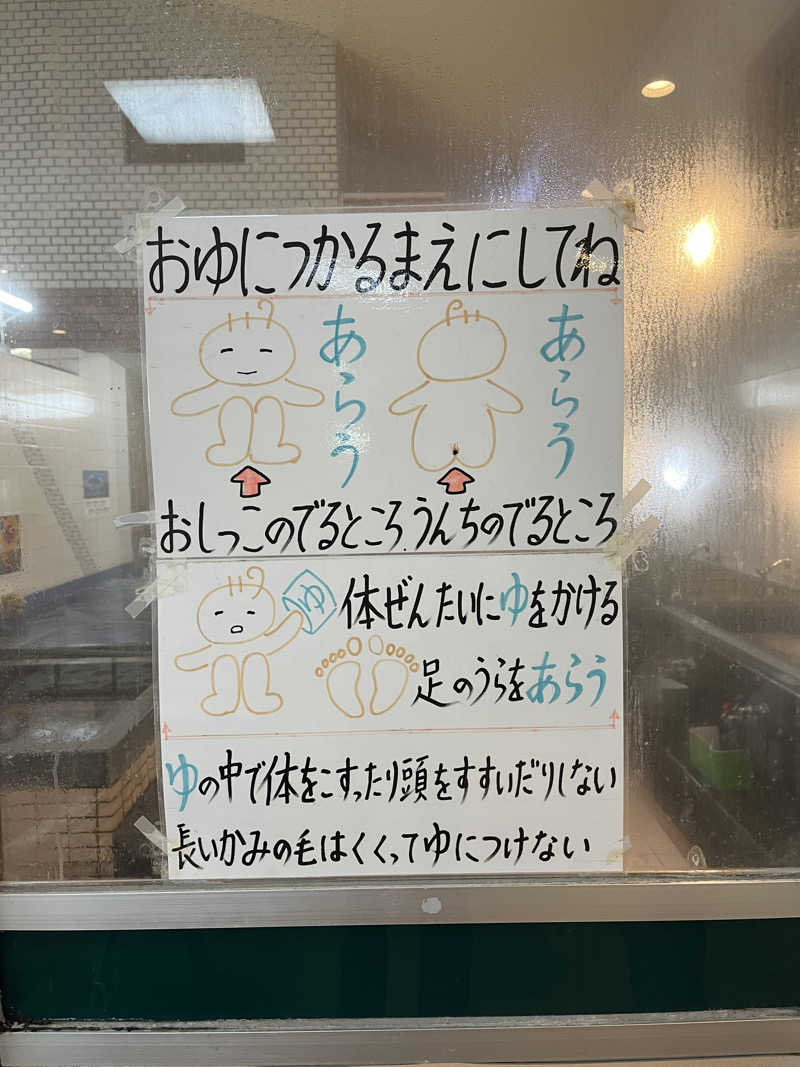 おゆにつかるまえにしてね
あらう
あらう
おしっこのでるところ.うんちのでるところ
ゆ
体ぜんたいにゆをかける
足のうらをあらう
ゆの中で体をこすったり頭をすすいだりしない
長いかみの毛はくくってゆにつけない